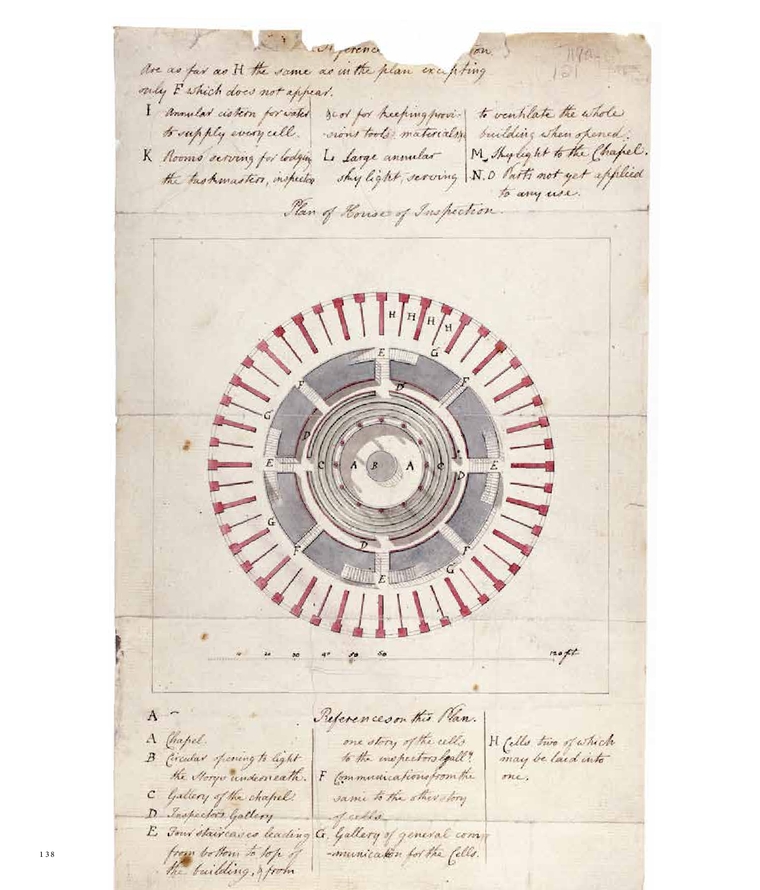 Reference
Are as far as H the same as in the plan excepting
only F which does not appear.
I Annular cistern for water
to supply every cell.
K Rooms serving for lodging
the taskmasters, inspectors
&c or for keeping provi-
-sions tools, materials &c
L Large annular
sky light, serving
to ventilate the whole
building when opened.
M Sky light to the Chapel.
N.O Parts not yet applied
to any use.
Plan of House of Inspection.
H H H H
E G
F D F
G D
E C A B A C D E
G
F D F
E G
50 60 120 feet
A
References on this Plan.
A Chapel.
B Circular opening to light
the Storys underneath.
C Gallery of the chapel.
D Inspectors Gallery
E Four staircases leading
from bottom to top of
the building, & from
one story of the cells
to the inspectors Gall.y
F Communications from the
same to the other story
of cells.
G. Gallery of general com
-munication for the Cells.
H Cells two of which
may be laid into
one.
138